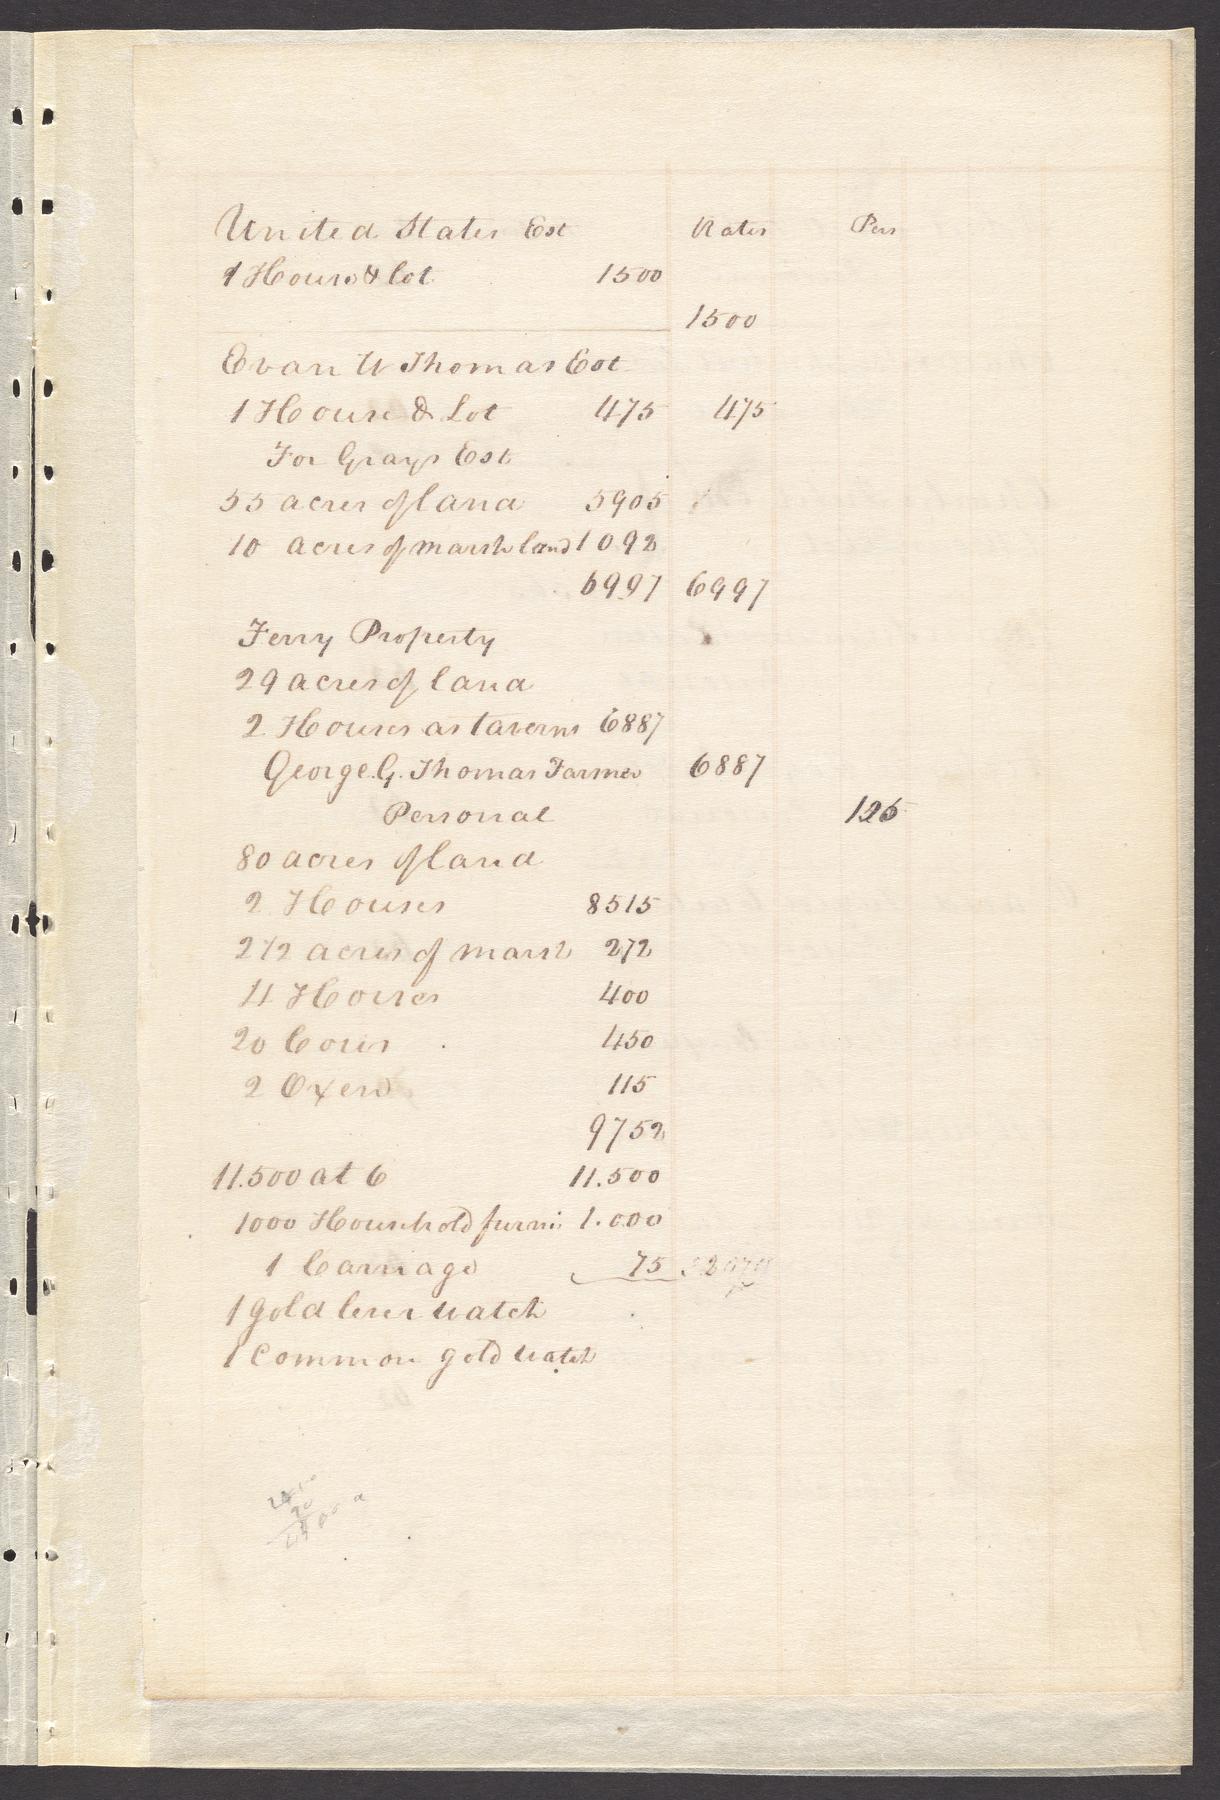 United States Est Rates Pers
1 House & lot 1500
1500
Evan W Thomas Est
1 House & Lot 475 475
For Grays Est
55 acres of land 5905
10 acres of marsh land 1092
6997 6997
Ferry Property
29 acres of land
2 Houses as taverns 6887
George G. Thomas Farmer 6887
Personal 125
80 acres of land
2 Houses 8515
2 1/2 acres of marsh 272
4 Horses 400
20 Cows 450
2 Oxen 115
9752
11.500 at 6 11.500
1000 Household furni 1.000
1 Carriage 75
1 gold lever watch
1 Common gold watch